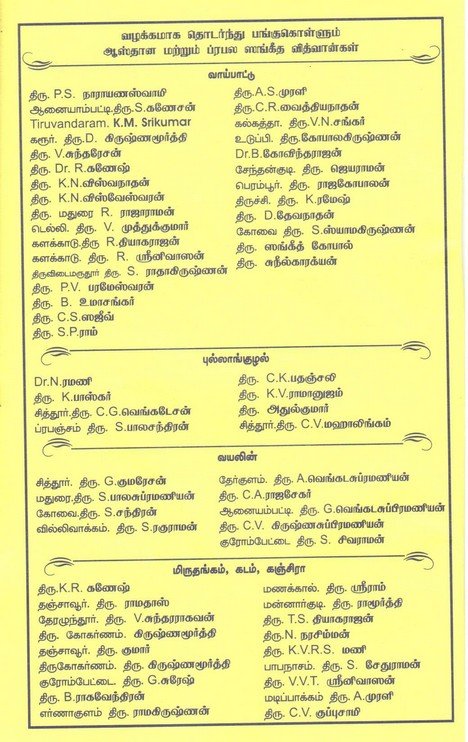 வழக்கமாக தொடர்ந்து பங்குகொள்ளும்
ஆஸ்தான மற்றும் ப்ரபல ஸங்கீத வித்வான்கள்
வாய்பாட்டு
திரு. P.S. நாராயணஸ்வாமி
ஆனையாம்பட்டி.திரு.S.கணேசன்
Tiruvandaram. K.M. Srikumar
கரூர். திரு.D. கிருஷ்ணமூர்த்தி
திரு. V.சுந்தரேசன்
திரு. Dr. R.கணேஷ்
திரு. K.N.விஸ்வநாதன்
திரு. K.N.விஸ்வேஸ்வரன்
திரு. மதுரை R. ராஜாராமன்
டெல்லி. திரு. V. முத்துக்குமார்
களக்காடு.திரு R.தியாகராஜன்
களக்காடு. திரு. R. ஸ்ரீனிவாஸன்
திருவிடைமருதூர் திரு. S. ராதாகிருஷ்ணன்
திரு. P.V. பரமேஸ்வரன்
திரு. B. உமாசங்கர்
திரு. C.S.ஸஜீவ்
திரு. S.P.ராம்
திரு.A.S.முரளி
திரு.C.R.வைத்தியநாதன்
கல்கத்தா. திரு.V.N.சங்கர்
உடுப்பி. திரு.கோபாலகிருஷ்ணன்
Dr.B.கோவிந்தராஜன்
சேந்தன்குடி. திரு. ஜெயராமன்
பெரம்பூர். திரு. ராஜகோபாலன்
திருச்சி. திரு. K.ரமேஷ்
திரு. D.தேவநாதன்
கோவை திரு. S.ஸ்யாமகிருஷ்ணன்
திரு. ஸங்கீத் கோபால்
திரு. சுநீல்கார்க்யன்
புல்லாங்குழல்
Dr.N.ரமணி
திரு. K.பாஸ்கர்
சித்தூர்.திரு. C.G.வெங்கடேசன்
ப்ரபஞ்சம் திரு. S.பாலசந்திரன்
திரு. C.K.பதஞ்சலி
திரு. K.V.ராமானுஜம்
திரு. அதுல்குமார்
சித்தூர்.திரு. C.V.மஹாலிங்கம்
வயலின்
சித்தூர். திரு. G.குமரேசன்
மதுரை.திரு. S.பாலசுப்ரமணியன்
கோவை.திரு. S.சந்திரன்
வில்லிவாக்கம். திரு. S.ரகுராமன்
தேர்குளம். திரு. A.வெங்கடசுப்ரமணியன்
திரு. C.A.ராஜசேகர்
ஆனையம்பட்டி. திரு. G.வெங்கடசுப்பிரமணியன்
திரு. C.V. கிருஷ்ணசுப்பிரமணியன்
குரோம்பேட்டை திரு. S. சிவராமன்
மிருதங்கம், கடம், கஞ்சிரா
திரு.K.R. கணேஷ்
தஞ்சாவூர். திரு. ராமதாஸ்
தேரழுந்தூர். திரு. V.சுந்தரராகவன்
திரு. கோகர்ணம். கிருஷ்ணமூர்த்தி
தஞ்சாவூர். திரு. குமார்
திருகோகர்ணம். திரு. கிருஷ்ணமூர்த்தி
குரோம்பேட்டை. திரு. G.சுரேஷ்
திரு. B.ராகவேந்திரன்
எர்ணாகுளம் திரு. ராமகிருஷ்ணன்
மணக்கால். திரு. ஸ்ரீராம்
மன்னார்குடி. திரு. ராமூர்த்தி
திரு. T.S. தியாகராஜன்
திரு.N. நரசிம்மன்
திரு. K.V.R.S. மணி
பாபநாசம். திரு. S. சேதுராமன்
திரு. V.V.T. ஸ்ரீனிவாஸன்
மடிப்பாக்கம் திரு. A.முரளி
திரு. C.V. குப்புசாமி